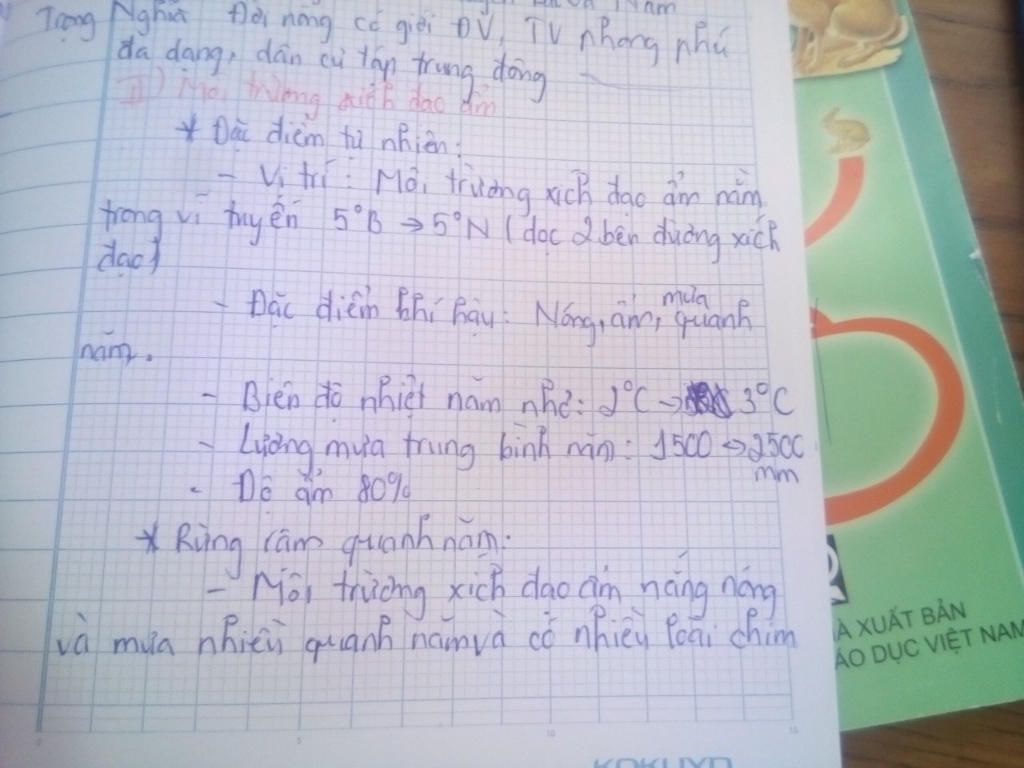 Nam
Trọng Nghĩa Đới nóng có giới ĐV, TV phong phú
đa dạng, dân cư tập trung đông
II) Môi trường xích đạo ẩm
* Đặc điểm tự nhiên:
- Vị trí: Môi trường xích đạo ẩm nằm
trong vĩ tuyến 5°B → 5°N (dọc 2 bên đường xích
đạo)
- Đặc điểm khí hậu: Nóng, ẩm, mưa quanh
năm.
- Biên độ nhiệt năm nhỏ: 2°C → 3°C
- Lượng mưa trung bình năm: 1500 ↔ 2500
mm
- Độ ẩm 80%
* Rừng rậm quanh năm:
- Môi trường xích đạo ẩm nắng nóng
và mưa nhiều quanh năm và có nhiều loài chim
0 5 10 15
KOKUYO
À XUẤT BẢN
ÁO DỤC VIỆT NAM